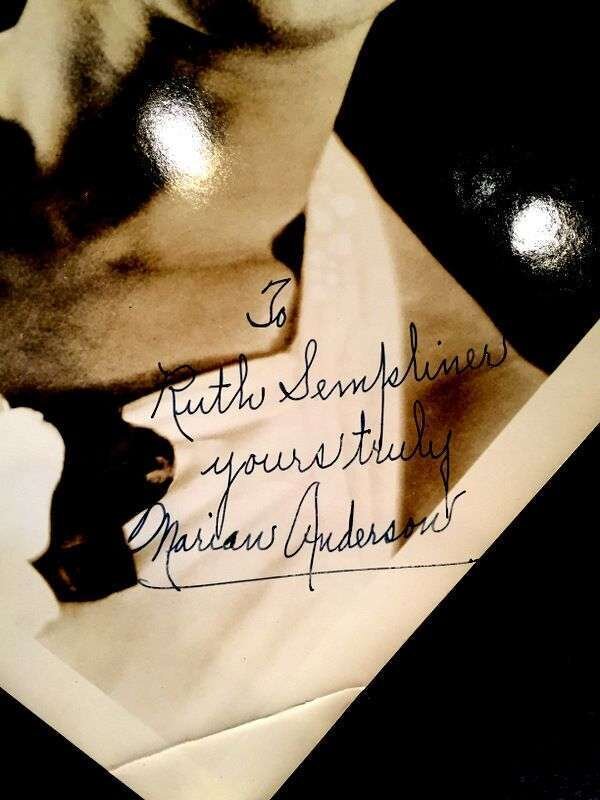 To
Ruth Sempliner
yours truly
Marian Anderson